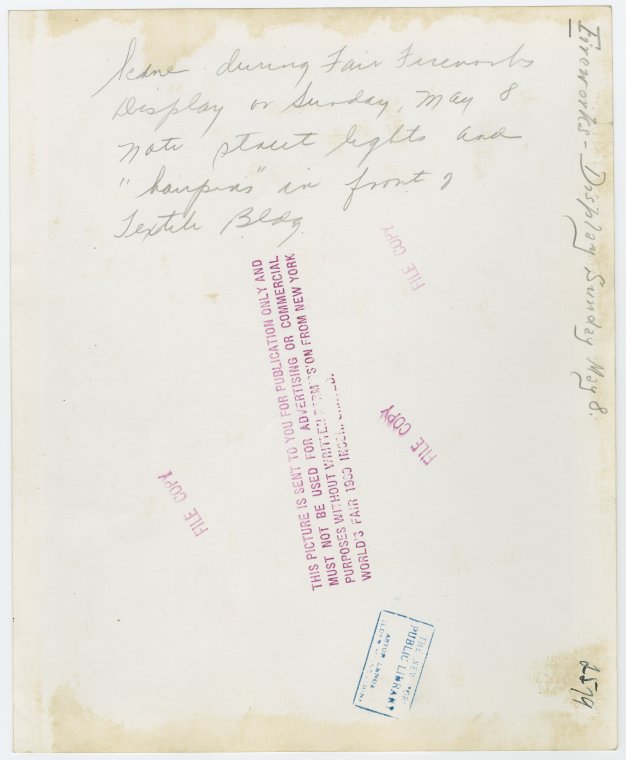 Scene during Fair Fireworks
Display on Sunday, May 8
Note street lights and
"hairpins" in front of
Textile Bldg
Fireworks - Display Sunday May 8.
FILE COPY
THIS PICTURE IS SENT TO YOU FOR PUBLICATION ONLY AND
MUST NOT BE USED FOR ADVERTISING OR COMMERCIAL
PURPOSES WITHOUT WRITTEN PERMISSION FROM NEW YORK
WORLD'S FAIR
FILE COPY
FILE COPY
THE NEW YORK
PUBLIC LIBRARY
ASTOR LENOX
2579